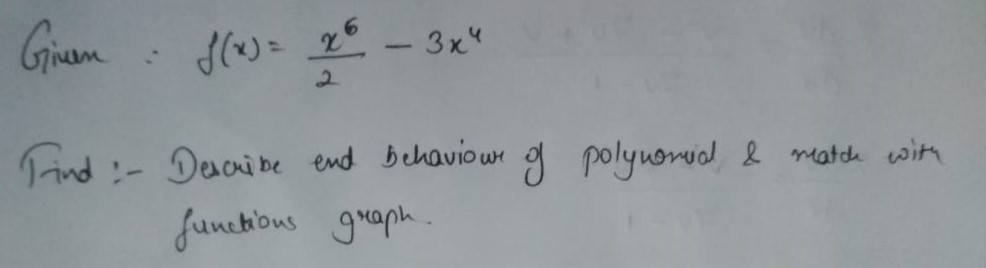 Given : f(x) = x⁶/2 - 3x⁴
Find :- Describe end behaviour of polynomial & match with
functions graph.